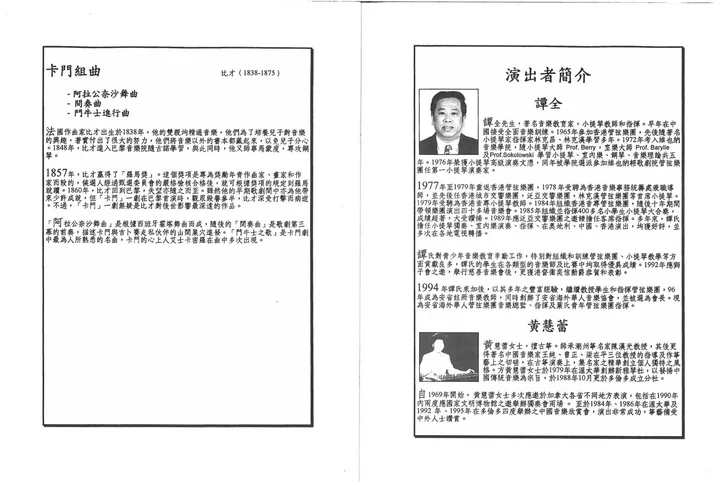 卡門組曲
比才 (1838-1875)
- 阿拉公奈沙舞曲
- 間奏曲
- 鬥牛士進行曲
法國作曲家比才出生於1838年，他的雙親均精通音樂，他們為了培養兒子對音樂
的興趣，著實付出了很大的努力，他們將音樂以外的書本都藏起來，以免兒子分心
。1848年，比才進入巴黎音樂院隨古諾學習，與此同時，他又師事馬蒙度，專攻鋼
琴。
1857年，比才贏得了「羅馬獎」。這個獎項是專為獎勵年青作曲家、畫家和作
家而設的，候選人經過甄選委員會的嚴格檢核合格後，就可根據獎項的規定到羅馬
就讀。1860年，比才回到巴黎，失望亦隨之而至。雖然他的早期歌劇間中亦為他帶
來少許成就，但「卡門」一劇在巴黎首演時，觀眾毀譽參半，比才深受打擊而病逝
。不過，「卡門」一劇無疑是比才對後世影響最深遠的作品。
「阿拉公奈沙舞曲」是根據西班牙霍塔舞曲而成，隨後的「間奏曲」是歌劇第三
幕的前奏，描述卡門與吉卜賽走私伙伴的山間巢穴進發。「鬥牛士之歌」是卡門劇
中最為人所熟悉的名曲，卡門的心上人艾士卡密羅在曲中多次出現。
演出者簡介
譚全
譚全先生，著名音樂教育家，小提琴教師和指揮。早年在中
國接受全面音樂訓練。1965年參加香港管弦樂團，先後隨著名
小提琴家指揮家林克昌、林克漢學習多年。1972年考入維也納
音樂學院，隨小提琴大師 Prof. Berry，室樂大師 Prof. Barylle
及Prof.Sokolowski 學習小提琴、室內樂、鋼琴、音樂理論共五
年。1976年榮獲小提琴高級演奏文憑，同年被學院選派參加維也納輕歌劇院管弦樂
團任第一小提琴演奏家。
1977年至1979年重返香港管弦樂團，1978年受聘為香港音樂事務統籌處職
師，並先後任香港城市交響樂團，泛亞交響樂團，林克漢管弦樂團等首席小提琴。
1979年受聘為香港音專小提琴教師。1984年組織香港青專管弦樂團，隨後十年期間
帶領樂團演出四十多場音樂會。1985年組織並指揮400多名小學生小提琴大合奏，
成績超著，大受讚揚。1989年應泛亞交響樂團之邀請擔任客席指揮。多年來，譚氏
擔任小提琴獨奏、室內樂演奏、指揮、在奧地利、中國、香港演出，均獲好評，並
多次在各地電視轉播。
譚氏對青少年音樂教育辛勤工作，特別對組織和訓練管弦樂團、小提琴教學等方
面貢獻良多，譚氏的學生在各類型的音樂節及比賽中均取得優異成績。1992年應獅
子會之邀，舉行慈善音樂會後，更獲港督衛奕信勳爵嘉賞和表彰。
1994 年譚氏來加後，以其多年之豐富經驗，繼續教授學生和指揮管弦樂團，96
年成為安省註冊音樂教師，同時創辦了安省海外華人音樂協會，並被選為會長。現
為安省海外華人管弦樂團音樂總監、指揮及黨氏青年管弦樂團指揮。
黃慧蕾
黃慧蕾女士，擅古箏。師承潮州箏名家陳漢光教授，其後更
得著名中國音樂家王純、曹正、梁在平三位教授的指導及作箏
藝上之切磋，在古箏演奏上，集名家之精華創立個人獨特之風
格。方黃慧蕾女士於1979年在溫太華創辦新雅琴社，以發揚中
國傳統音樂為宗旨，於1988年10月更於多倫多成立分社。
自1969年開始，黃慧蕾女士多次應邀於加拿大各省不同地方表演，包括在1990年
內兩度應國家文明博物館之邀舉辦獨奏會兩場。 至於1984年、1986年在溫太華及
1992 年、1995年在多倫多四度舉辦之中國音樂欣賞會，演出非常成功，箏藝備受
中外人士讚賞。